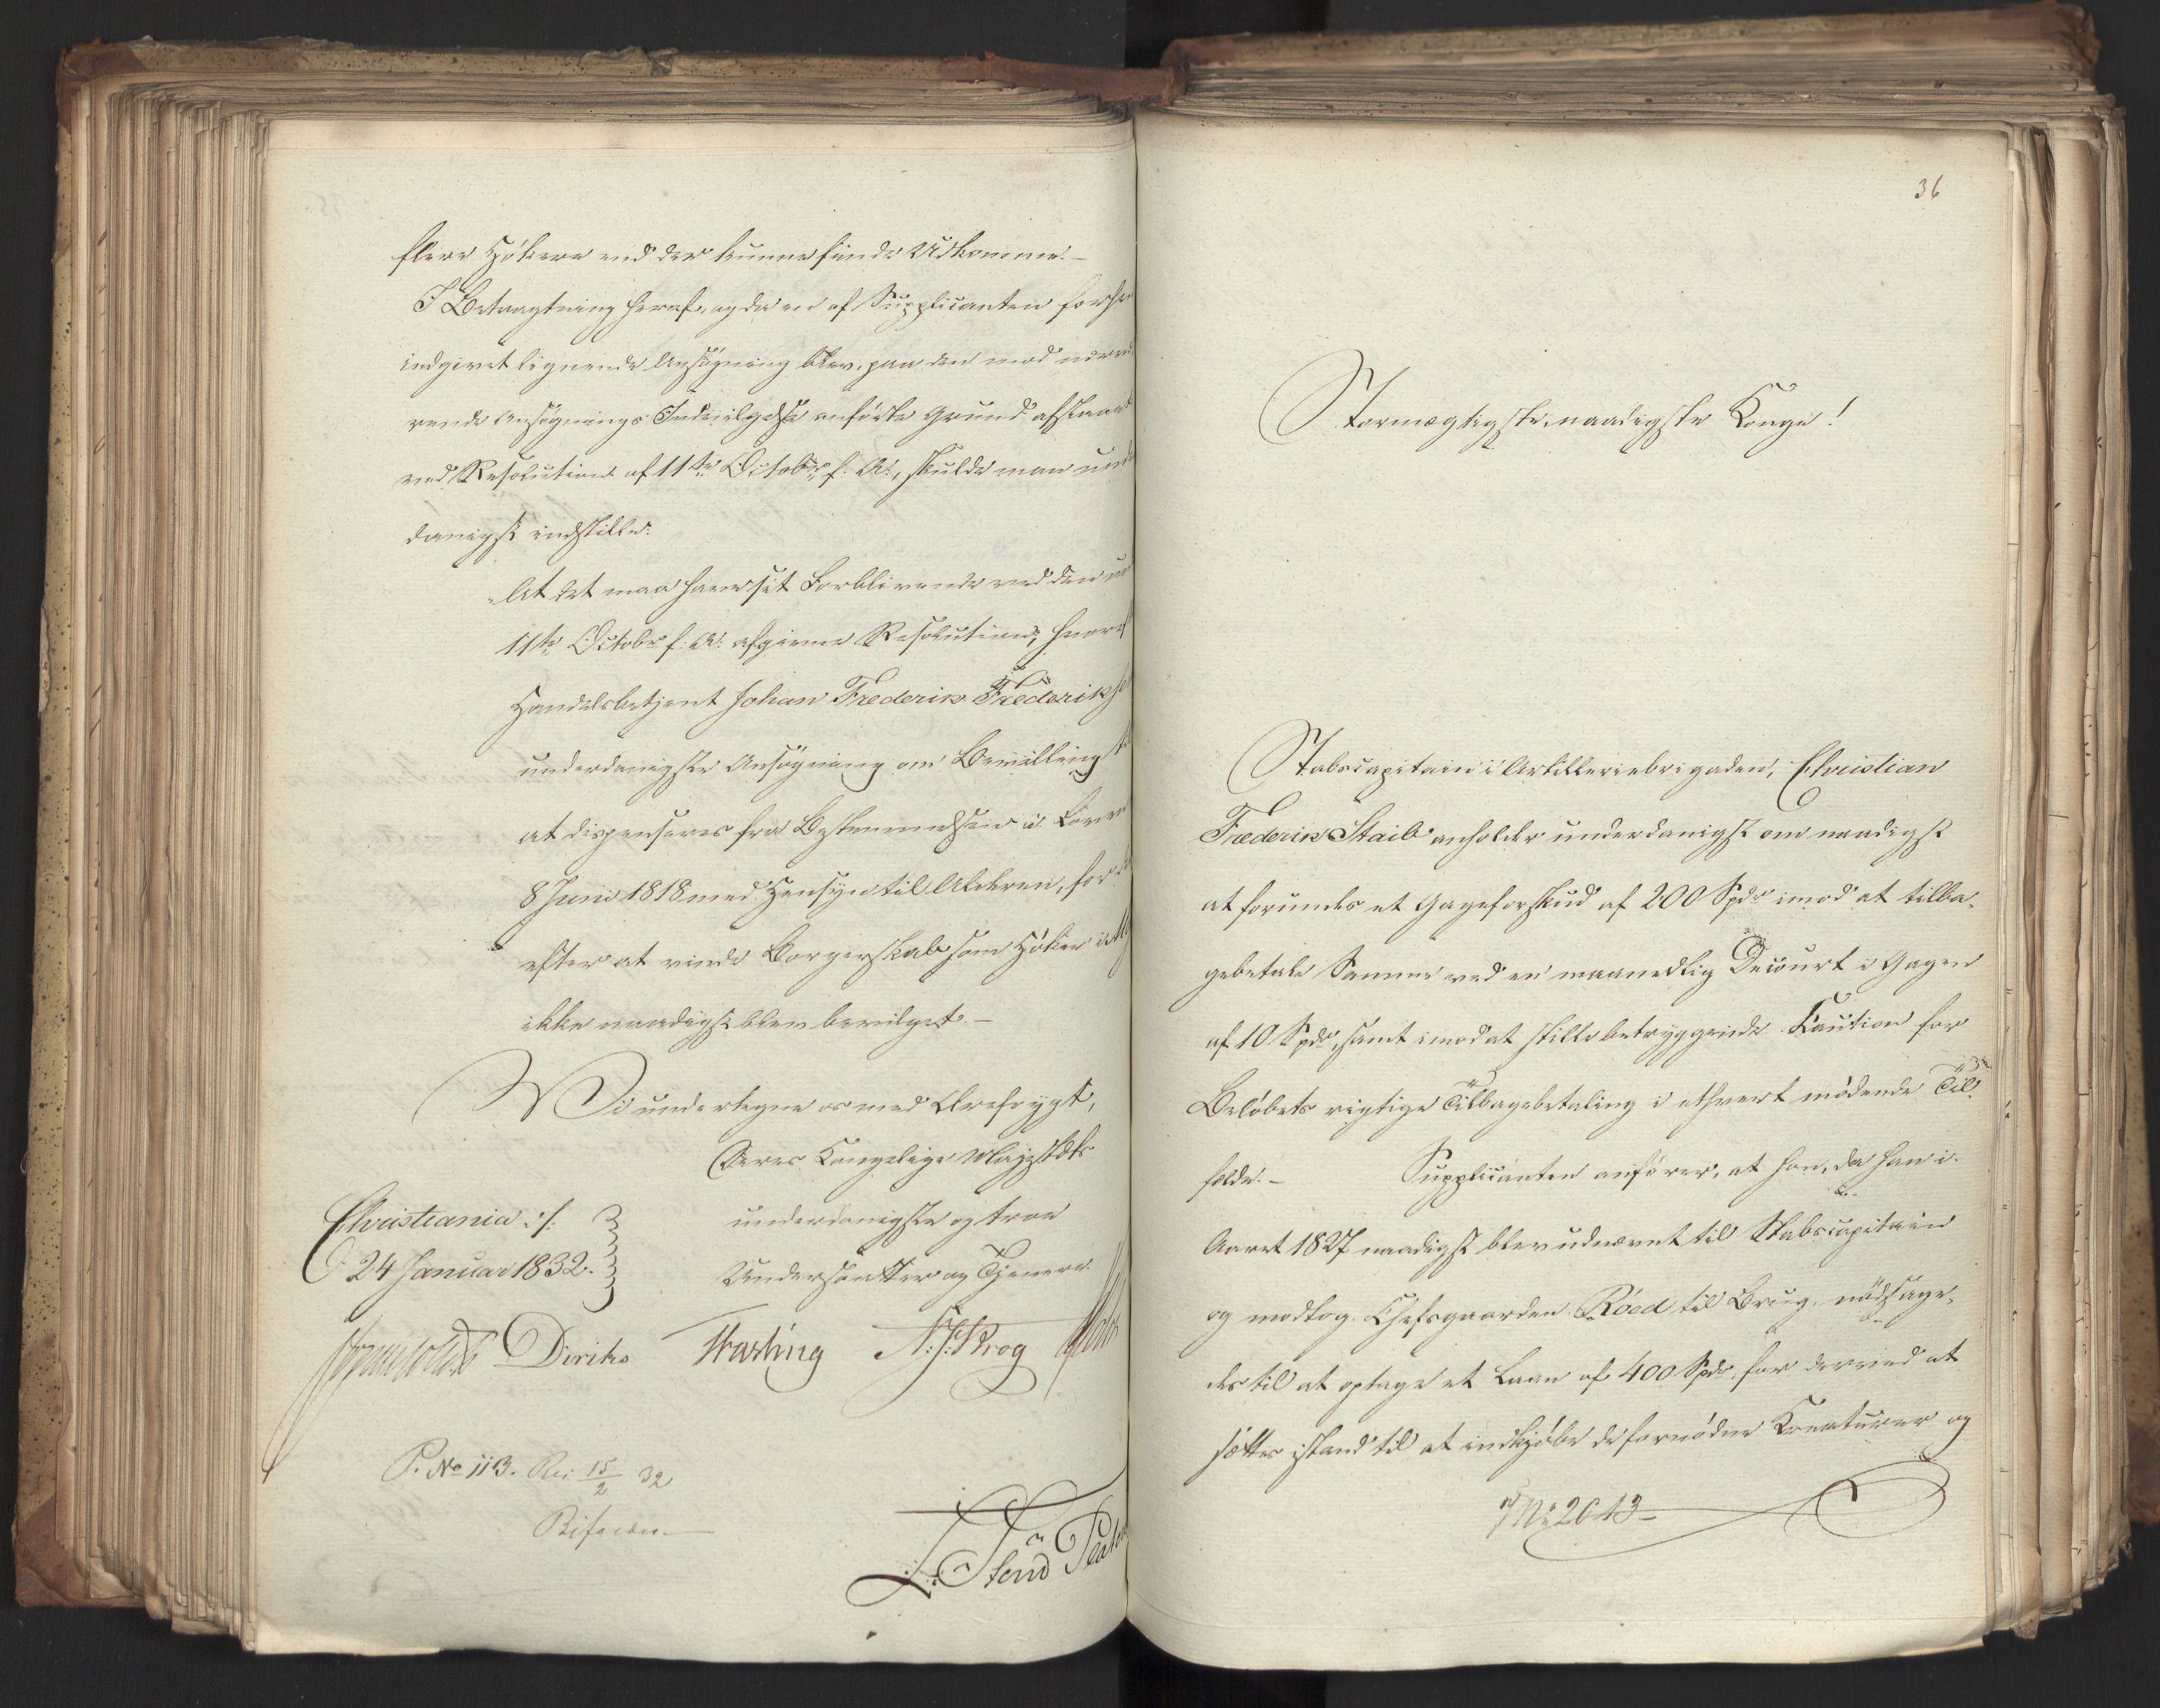 flere Hökere end der kunne finde Udkomme. –
I Betragtning heraf, og da en af Supplicanten forhen
indgivet lignende Ansögning blev, paa den mod nærvæ
rende Ansögnings Indvilgelse anförte Grund afslaaet
ved Resolution af 11te Octobr f. A., skulde man under
danigst indstille:
"At det maa have sit Forblivende ved den un
11te Octobr f. A. afgivne Resolution, hvoref
Handelsbetjent Johan Frederik Frederiksen
underdanigste Ansögning om Bevilling til
at dispenseres fra Bestemmelsen i Loven
8 Juni 1818 med Hensyn til Alderen, for
efter at vinde Borgerskab som Höker i
ikke naadigst blev bevilget. –
Vi undertegne os med Ærefrygt,
Deres Kongelige Majestæts
Christiania :/:
underdanigste og troe
24 Januar 1832.
Undersaatter og Tjenere
Diriks Harbing N. J. Krog
P. No 113. Res 15/2 32
Bifaldes
36
Stormægtigste, naadigste Konge!
Stabscapitain i Artilleriebrigaden, Christian
Frederik Staib anholder underdanigst om naadigst
at forundes et Gageforskud af 200 Spdr imod at tilba-
gebetale Samme ved en maanedlig Decourt i Gagen
af 10 Spdr, samt imod at stille betryggende Kaution for
Belöbets rigtige Tilbagebetaling i ethvert mödende Til-
fælde. – Supplicanten anförer, at han, da han i
Aaret 1827 naadigst blev udnævnt til Stabscapitain
og modtog Chefsgaarden Röed til Brug, nödsage-
des til at optage et Laan af 400 Spdr, for derved at
sættes istand til at indkjöbe de fornödne Kreaturer og
No 2013 –